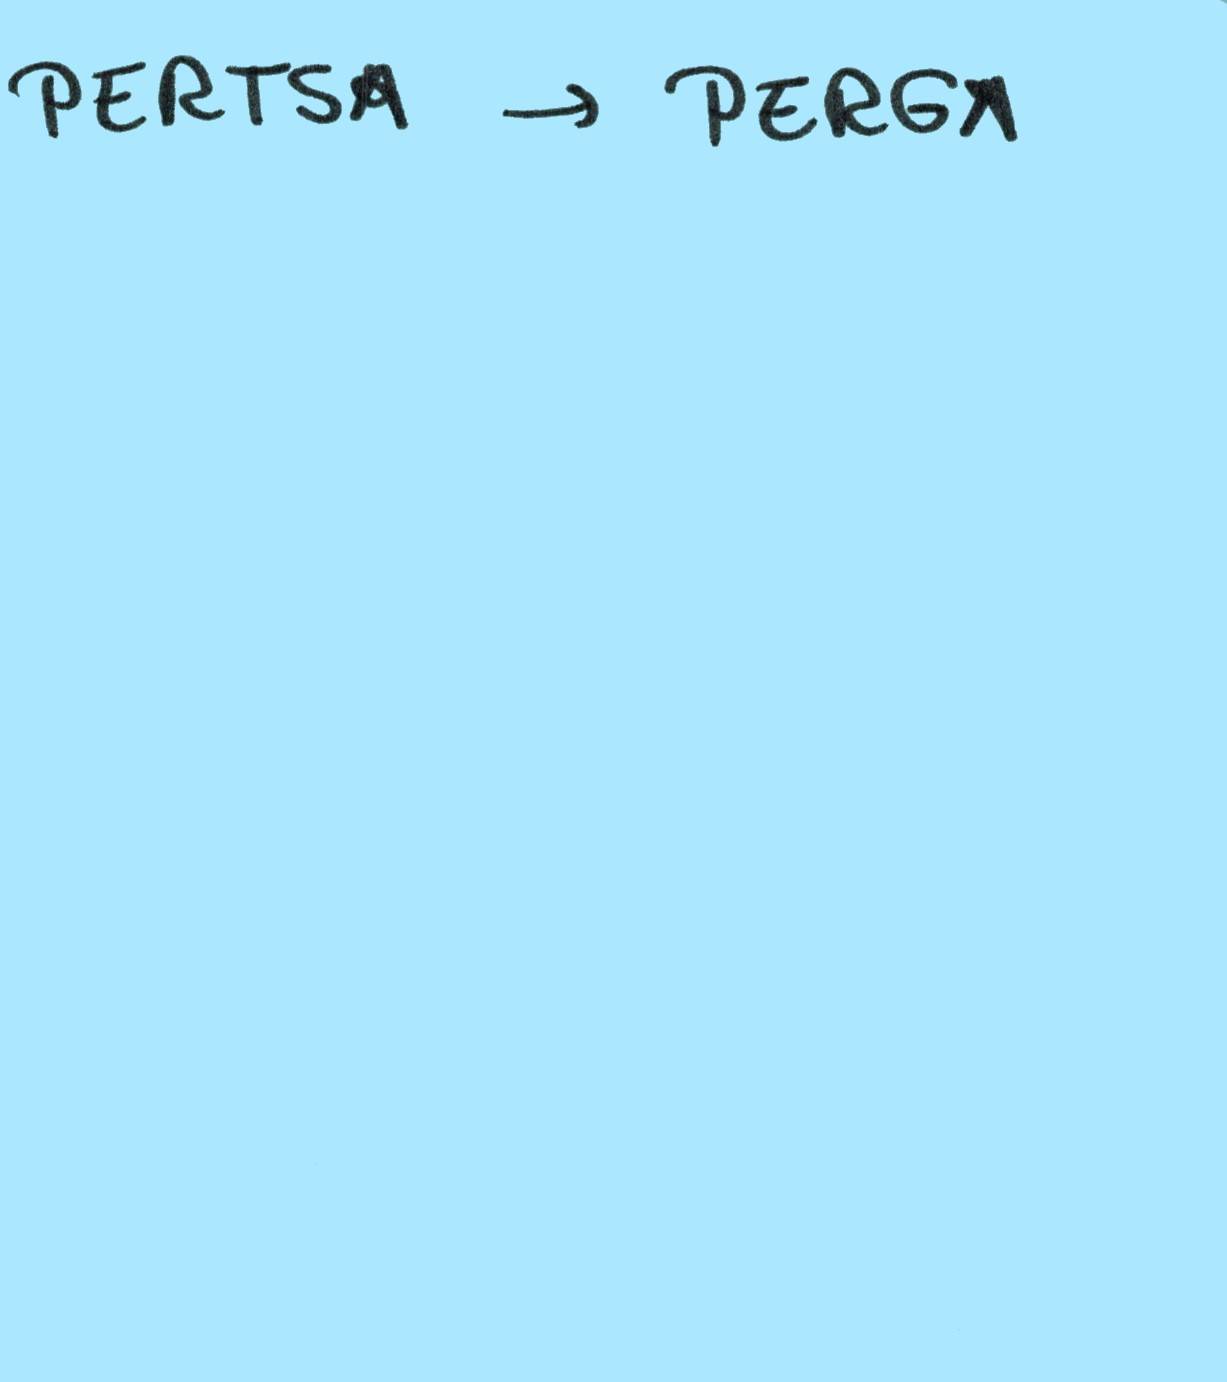 PERTSA → PERGA